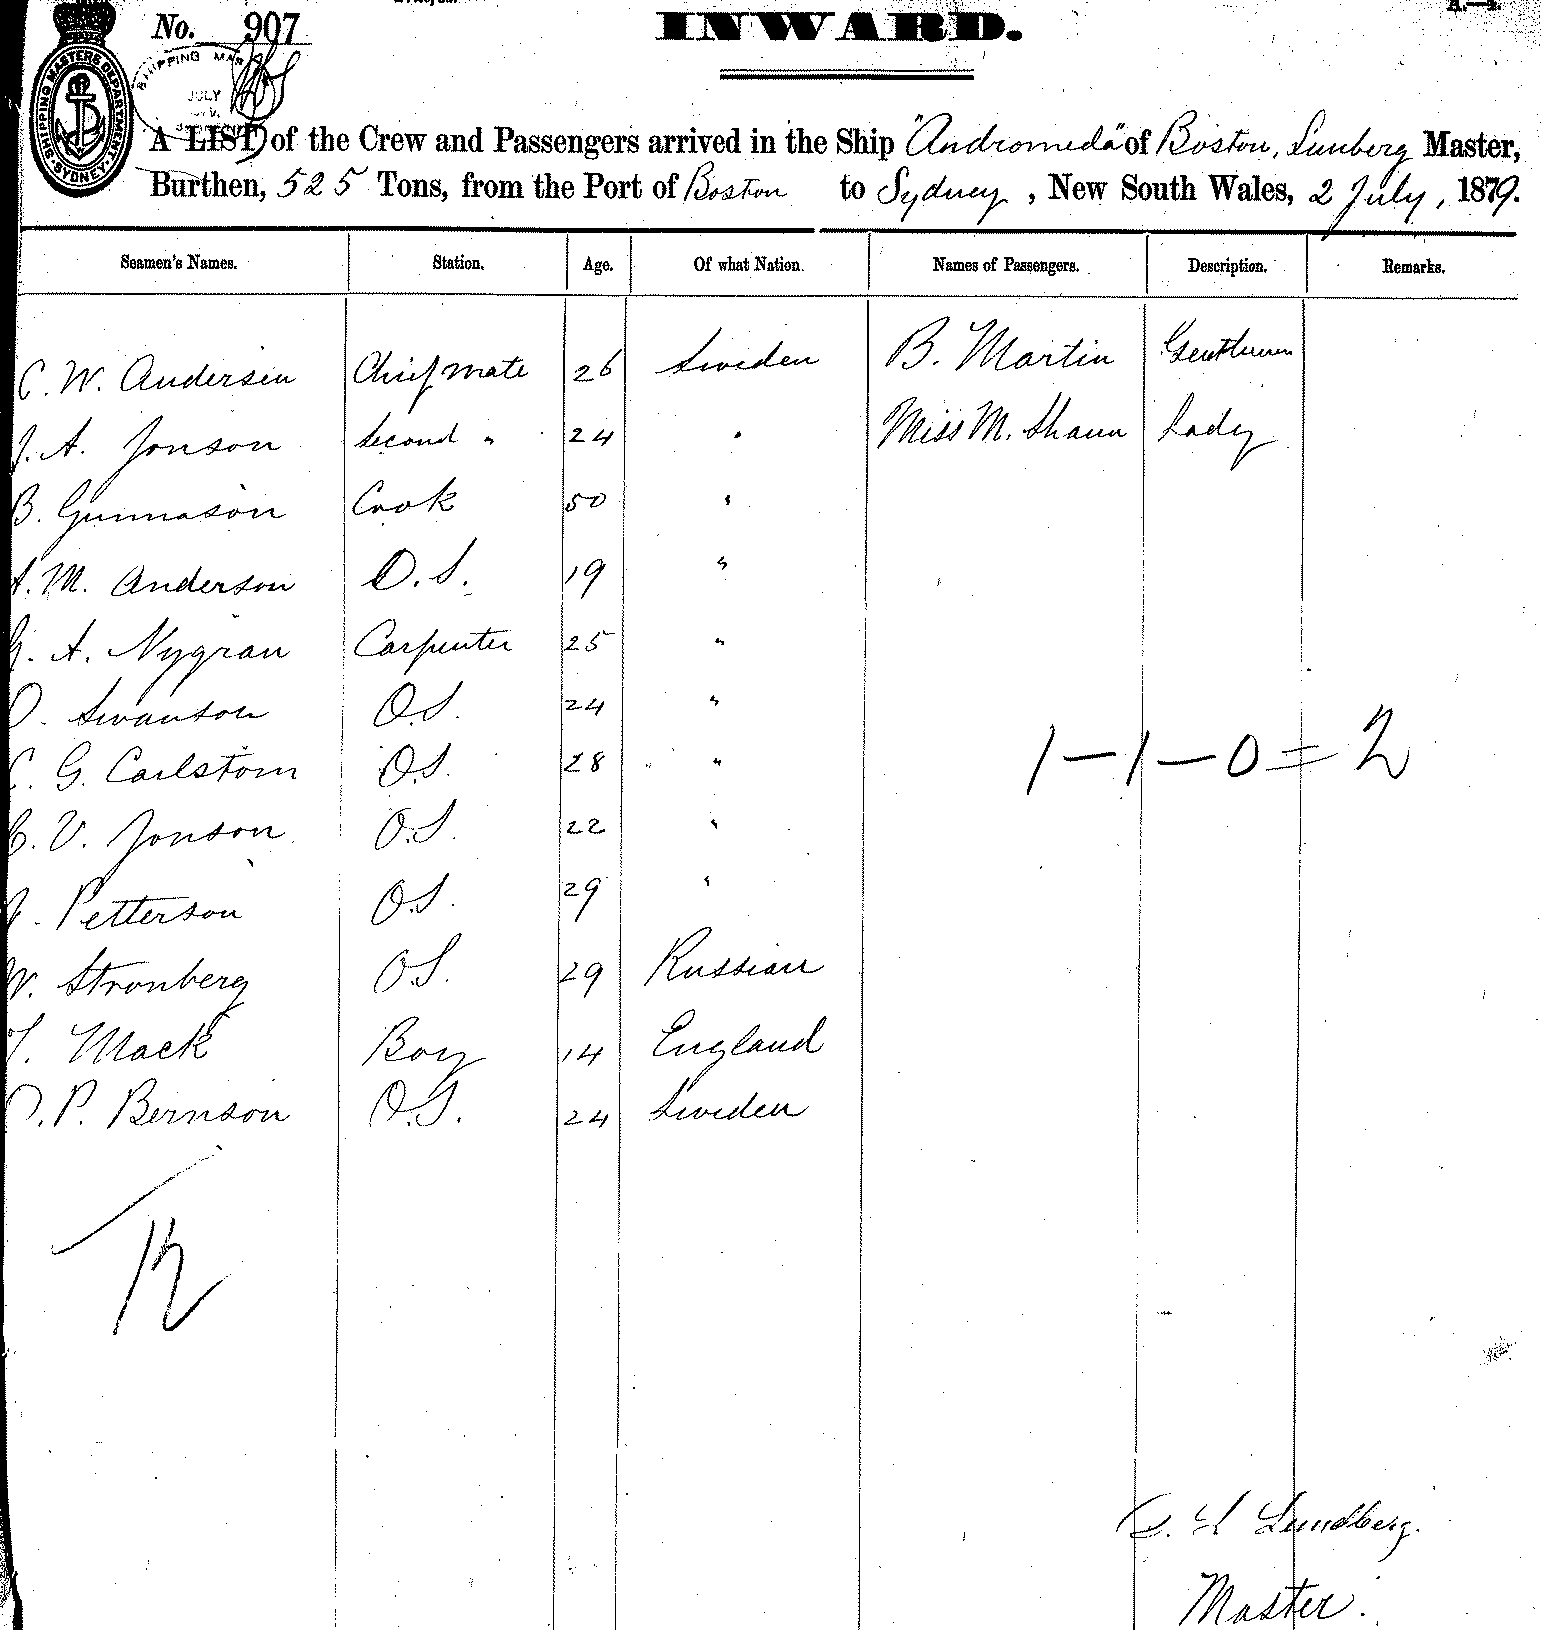 No. 907
INWARD.
SHIPPING MASTERS DEPARTMENT · SYDNEY ·
SHIPPING MAS
JULY
A LIST of the Crew and Passengers arrived in the Ship "Andromeda" of Boston, Lunberg Master,
Burthen, 525 Tons, from the Port of Boston to Sydney, New South Wales, 2 July, 1879.
Seamen's Names. Station. Age. Of what Nation. Names of Passengers. Description. Remarks.
C. W. Andersen Chief mate 26 Sweden B. Martin Gentleman
J. A. Jonson Second " 24 " Miss M. Shaun Lady
B. Gunnason Cook 50 "
A. M. Anderson O.S. 19 "
A. Nygran Carpenter 25 "
O. Swanson O.S. 24 "
C. G. Carlstom O.S. 28 "
C. V. Jonson O.S. 22 "
Petterson O.S. 29 "
W. Stronberg O.S. 29 Russian
T. Mack Boy 14 England
O. P. Bernson O.S. 24 Sweden
1-1-0=2
12
L Lundberg.
Master.